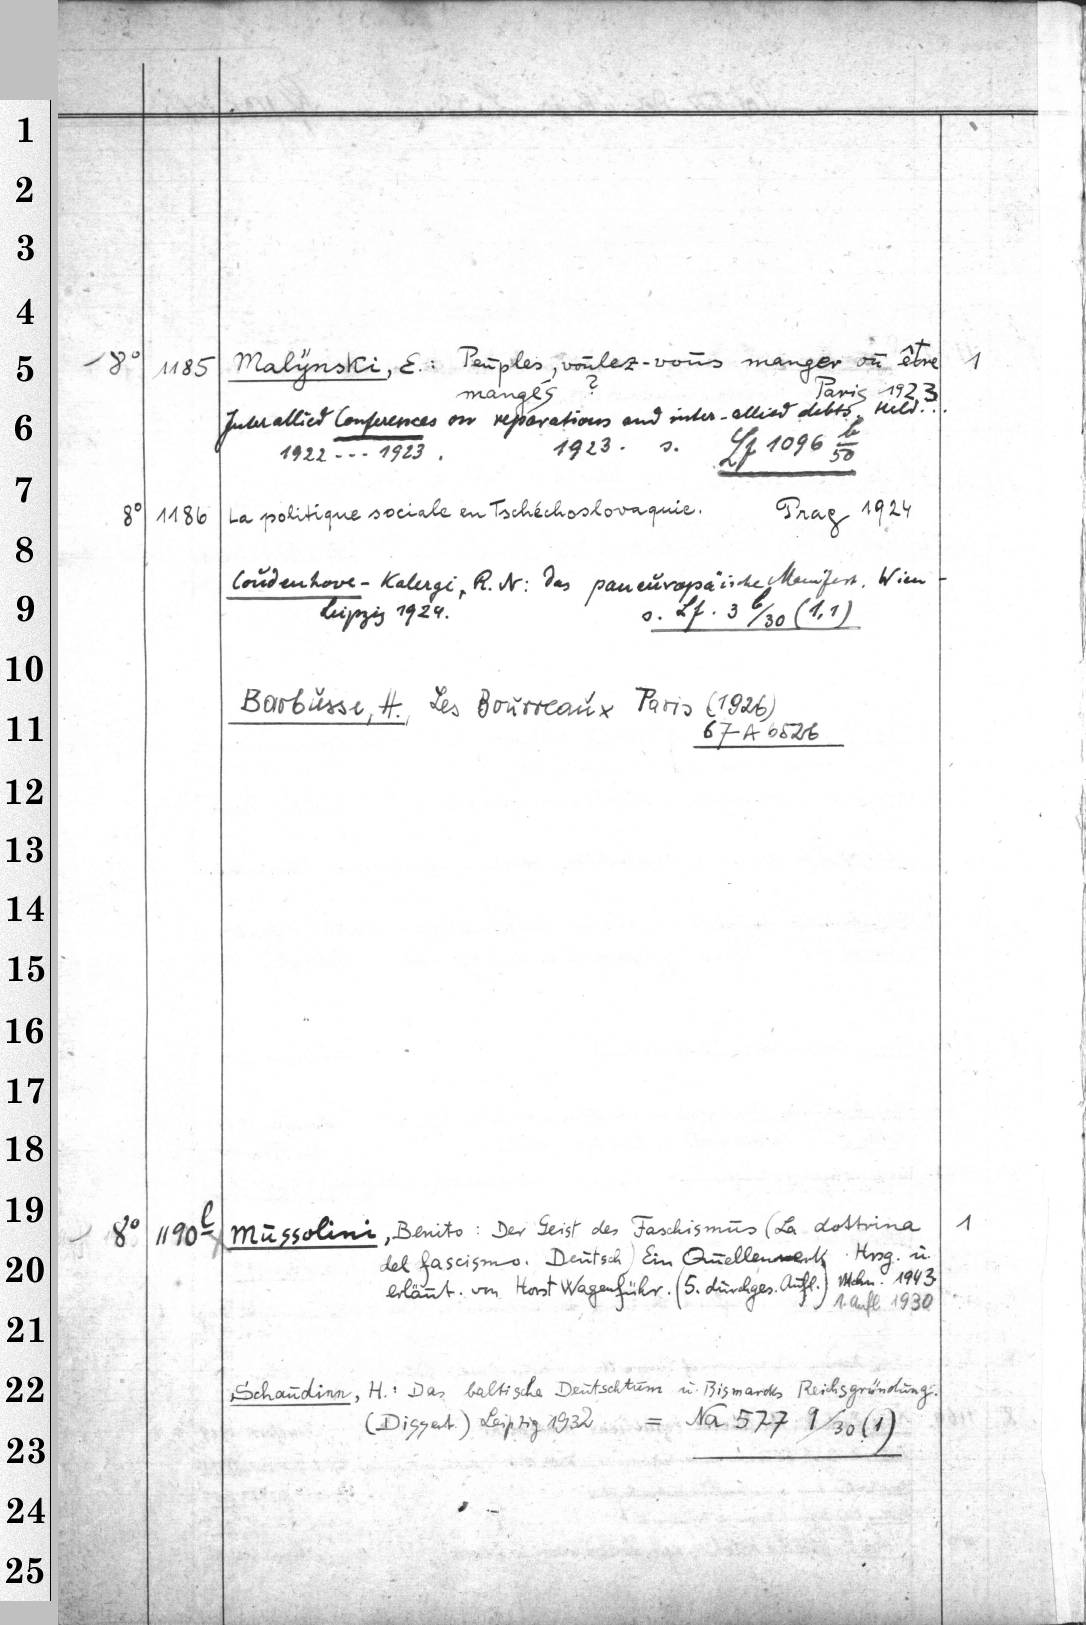 1
2
3
4
5
6
7
8
9
10
11
12
13
14
15
16
17
18
19
20
21
22
23
24
25
8° 1185 Malÿnski, E.: Peuples, voulez-vous manger ou être 1
mangés ? Paris 1923
Interallied Conferences on reparations and inter-allied debts. Held...
1922 --- 1923. 1923. s. Lf 1096 b/50
8° 1186 La politique sociale en Tschéchoslovaquie. Prag 1924
Coudenhove-Kalergi, R. N: Das paneuropäische Manifest. Wien-
Leipzig 1924. s. Lf. 3 b/30 (1,1)
Barbusse, H., Les Bourreaux Paris (1926)
67-A 6526
8° 1190 l Mussolini, Benito: Der Geist des Faschismus (La dottrina 1
del fascismo. Deutsch) Ein Quellenwerk. Hrsg. u.
erläut. von Horst Wagenführ. (5. durchges. Aufl.) Mchn. 1943
1. Aufl. 1930
Schaudinn, H.: Das baltische Deutschtum u. Bismarcks Reichsgründung.
(Dissert.) Leipzig 1932 = Na 577 9/30 (1)